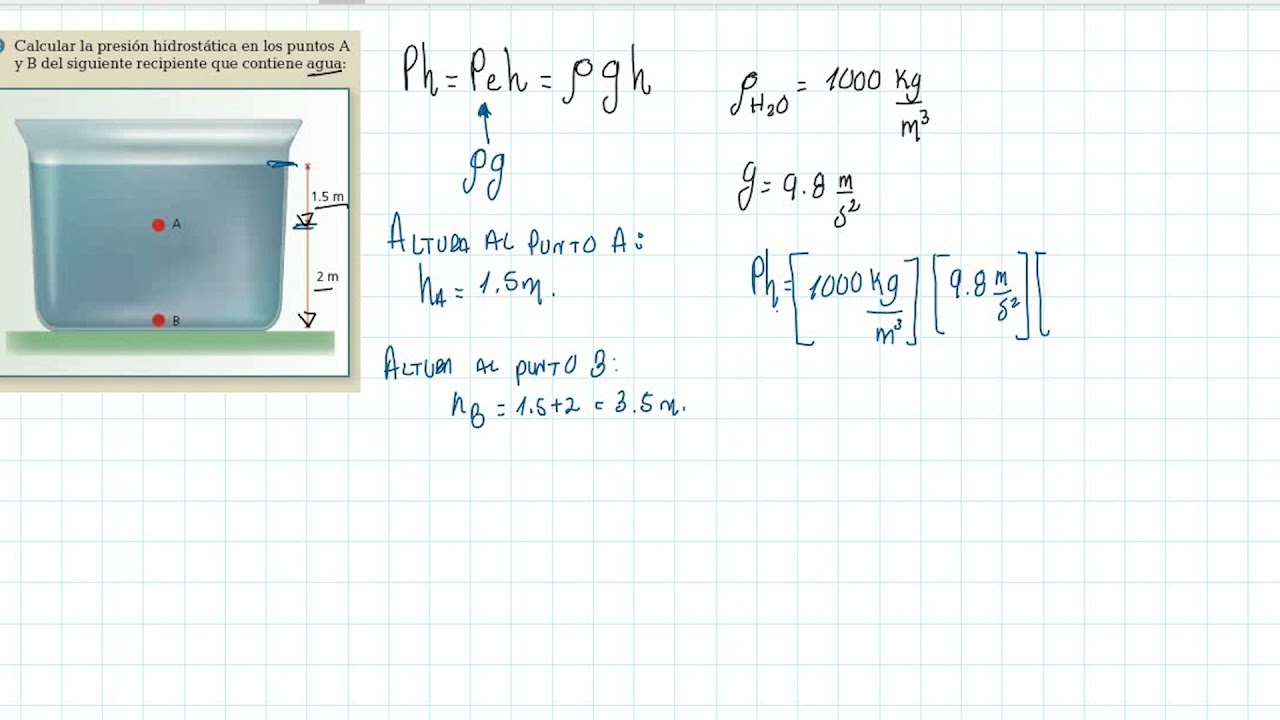 Calcular la presión hidrostática en los puntos A
y B del siguiente recipiente que contiene agua:
1.5 m
A
2 m
B
Ph = Peh = ρgh
ρg
ALTURA AL PUNTO A:
hA = 1.5m.
ALTURA AL PUNTO B:
hB = 1.5+2 = 3.5m.
ρH₂O = 1000 kg/m³
g = 9.8 m/s²
Ph = [1000 kg/m³] [9.8 m/s²] [